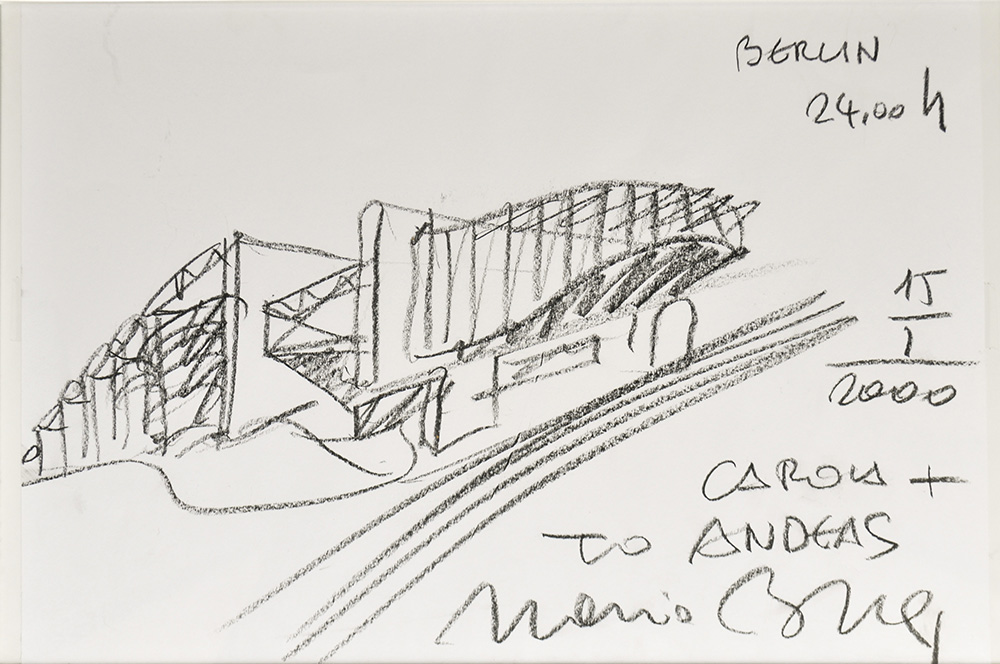 BERLIN
24,00 h
15
1
2000
CAROLA +
TO ANDEAS
Mario Botta